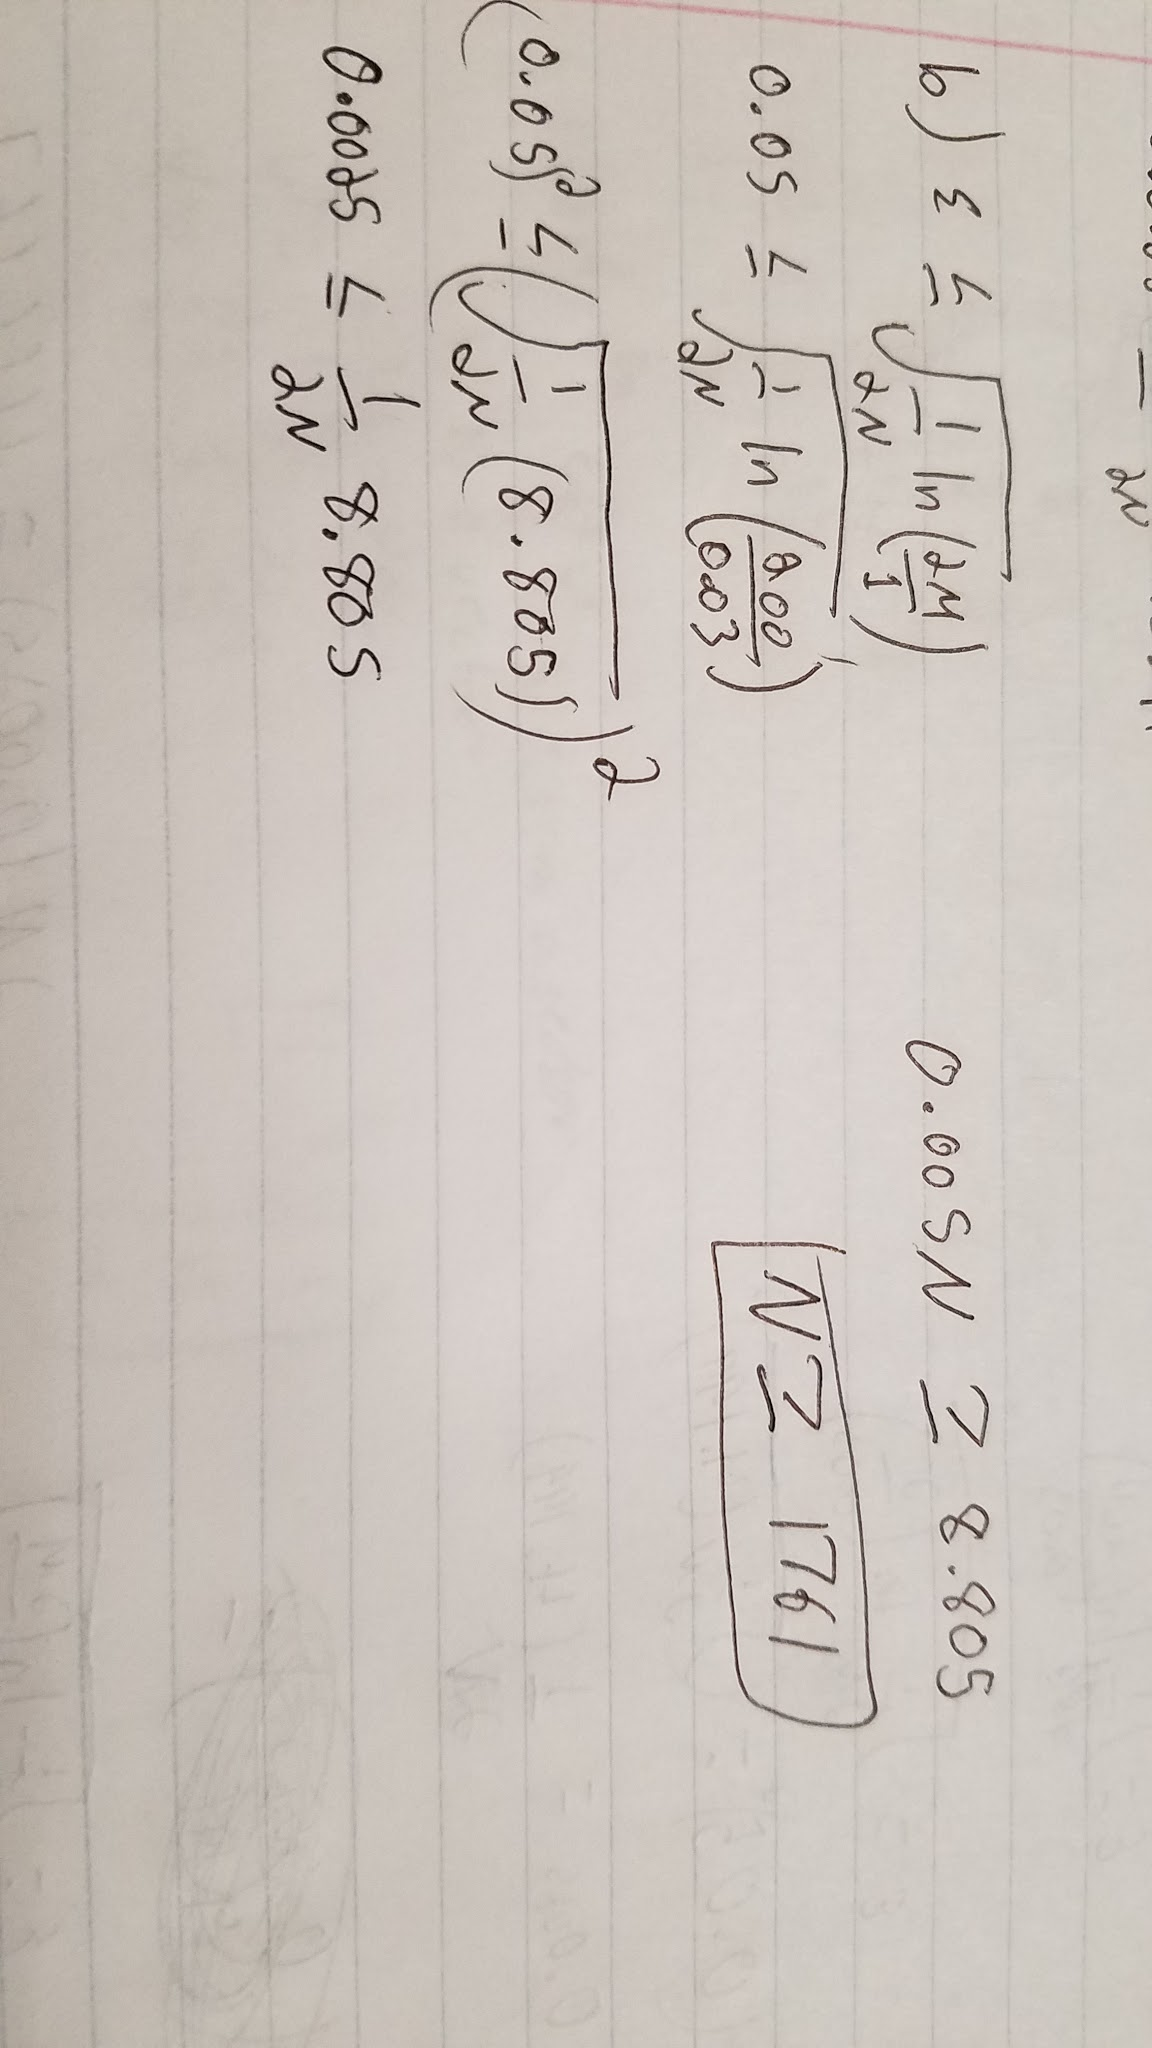 2N
b) ε ≤ √(1/2N ln(2M/1))
0.05 ≤ √(1/2N ln(200/0.03))
(0.05)² ≤ (√(1/2N (8.805)))²
0.0025 ≤ 1/2N 8.805
0.005N ≥ 8.805
N ≥ 1761